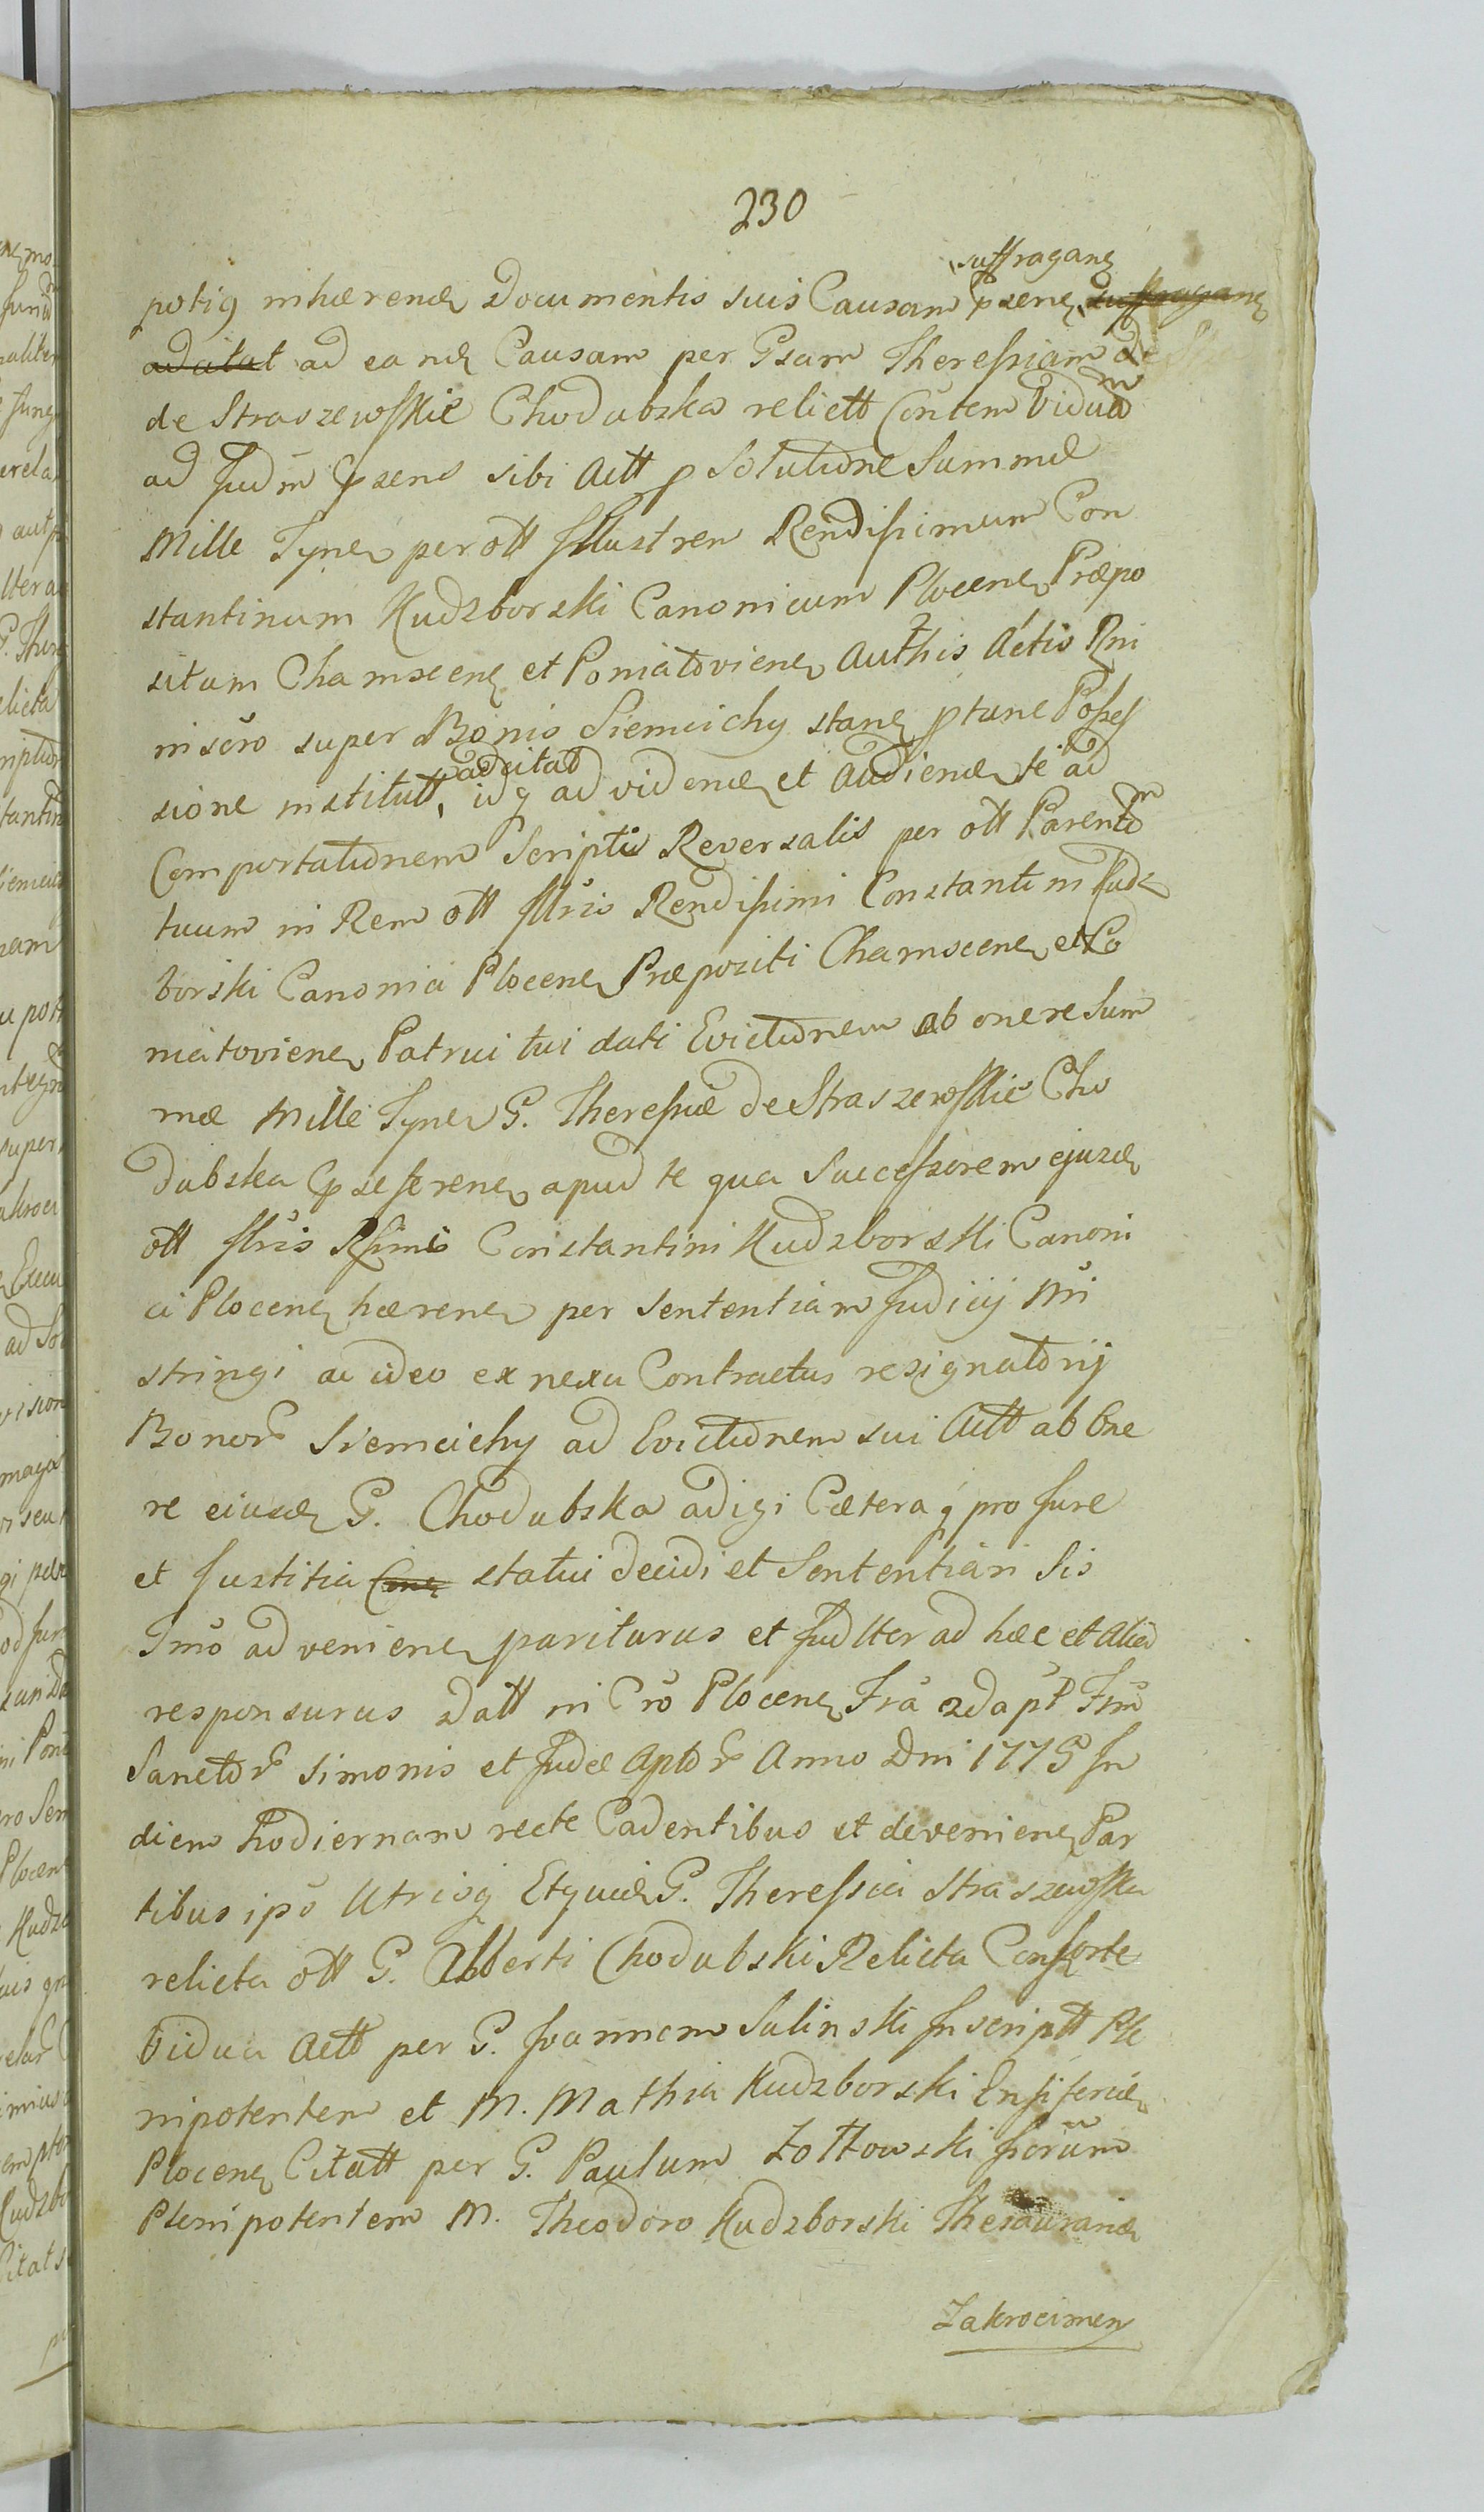 230
suffragane
potiq inhærend Documentis suis Causam Psene suffragane
adcitat ad eand Causam per Gsam Theressiam de
de Straszewsskie Chodubska relictt Cöntem Viduam
ad Judm Psens sibi Actt p Solutione Summæ
Mille Tyne per ott Illustren Rendissimum Con
stantinum Kudzborski Canonicum Plocene Præpo
situm Chamscene et Poniatoviene Authis Actis Rni
insero super Bonis Siemcichy stane ptune Posses
sione institutt, adcitat idq ad vidend et Audiend te ad
Comportationem Scripti Reversalis per ott Parentem
tuum in Rem ott Illris Rendissimi Constantini Kudz
borski Canonici Plocene Præpoziti Chamscene et Po
niatoviene Patrui tui dati Evictionem ab onere Sum
mæ Mille Tyne G. Theressiæ de Straszewsskie Cho
dubska Pseferene apud te qua Successorem ejusd
ott Illris Rssimi Constantini Kudzborski Canoni
ci Plocene hærene per sententiam Judicij Nri
stringi ac ideo ex nexu Contractus resignatorij
Bonor Siemcichy ad Evictionem sui Actt ab One
re eiusd G. Chodubska adigi Cætera q pro Jure
et Justitia statui decidi et Sententiari Sis
Tmö adveniene pariturus et Judlter ad hæc et alia
responsurus Datt in Crö Plocene Fra 2da pt Fm
Sanctor Simonis et Judæ Aptor Anno Dni 1775 In
diem hodiernam recte Cadentibus et deveniene Par
tibus ipö Utrisq Etquid G. Theressia Straszewska
relicta ott G. Alberti Chodubski Relicta Consorte
Vidua Actt per G. Joannem Salinski Inscriptt Ple
nipotentem et M. Mathia Kudzborski Ensiferid
Plocene Citatt per G. Paulum Zołtowski fiorum
Plenipotentem M. Theodoro Kudzborski Thesaurarid
Zakrocimen